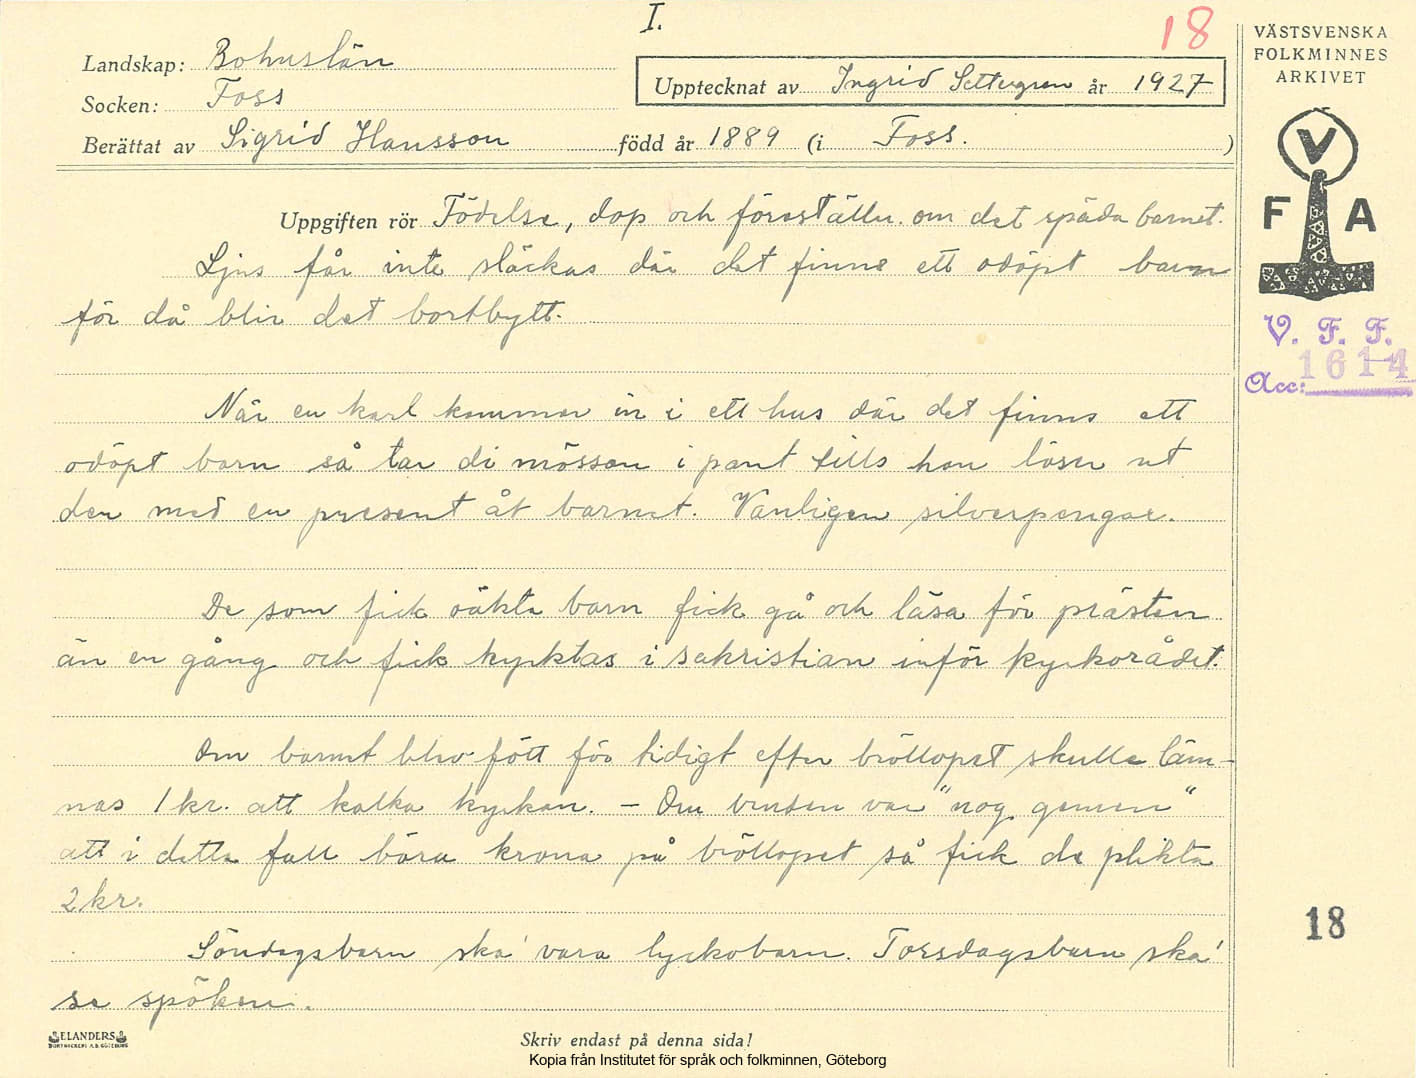 I.
18
Landskap: Bohuslän
Socken: Foss
Upptecknat av Ingrid Settergren år 1927
Berättat av Sigrid Hansson född år 1889 (i Foss. )
VÄSTSVENSKA
FOLKMINNES
ARKIVET
V
F A
V. F. F.
Acc: 1614
Uppgiften rör Födelse, dop och föreställn. om det späda barnet.
Ljus får inte släckas där det finns ett odöpt barn
för då blir det bortbytt.
När en karl kommer in i ett hus där det finns ett
odöpt barn så tar di mössan i pant tills han löser ut
den med en present åt barnet. Vanligen silverpengar.
De som fick oäkta barn fick gå och läsa för prästen
än en gång och fick kyrktas i sakristian inför kyrkorådet.
Om barnet blev fött för tidigt efter bröllopet skulle läm-
nas 1 kr. att kalka kyrkan. – Om bruden var "nog gemen"
att i detta fall bära krona på bröllopet så fick de plikta
2 kr.
Söndagsbarn ska' vara lyckobarn. Torsdagsbarn ska'
se spöken.
18
ELANDERS
BOKTRYCKERI A.B. GÖTEBORG
Skriv endast på denna sida!
Kopia från Institutet för språk och folkminnen, Göteborg